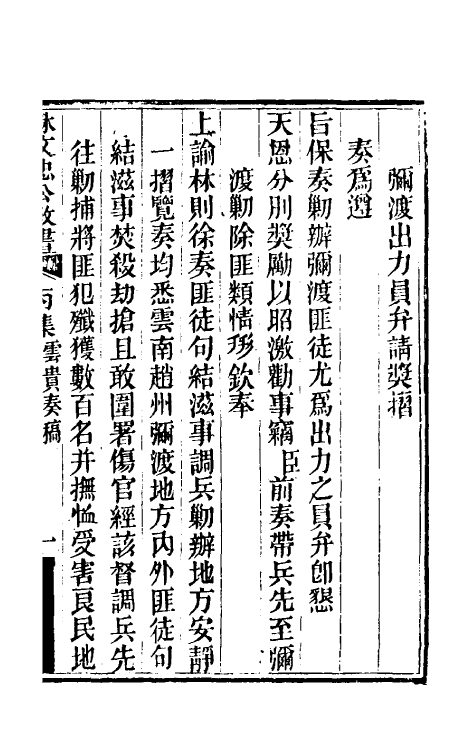 彌渡出力員弁請奬摺
奏爲遵
旨保奏勦辦彌渡匪徒尤爲出力之員弁卽懇
天恩分別奬勵以昭激勸事竊臣前奏帶兵先至彌
渡勦除匪類情形欽奉
上諭林則徐奏匪徒句結滋事調兵勦辦地方安靜
一摺覽奏均悉雲南趙州彌渡地方內外匪徒句
結滋事焚殺劫搶且敢圍署傷官經該督調兵先
往勦捕將匪犯殲獲數百名并撫恤受害良民地
林文忠公政書 丙集雲貴奏稿 一